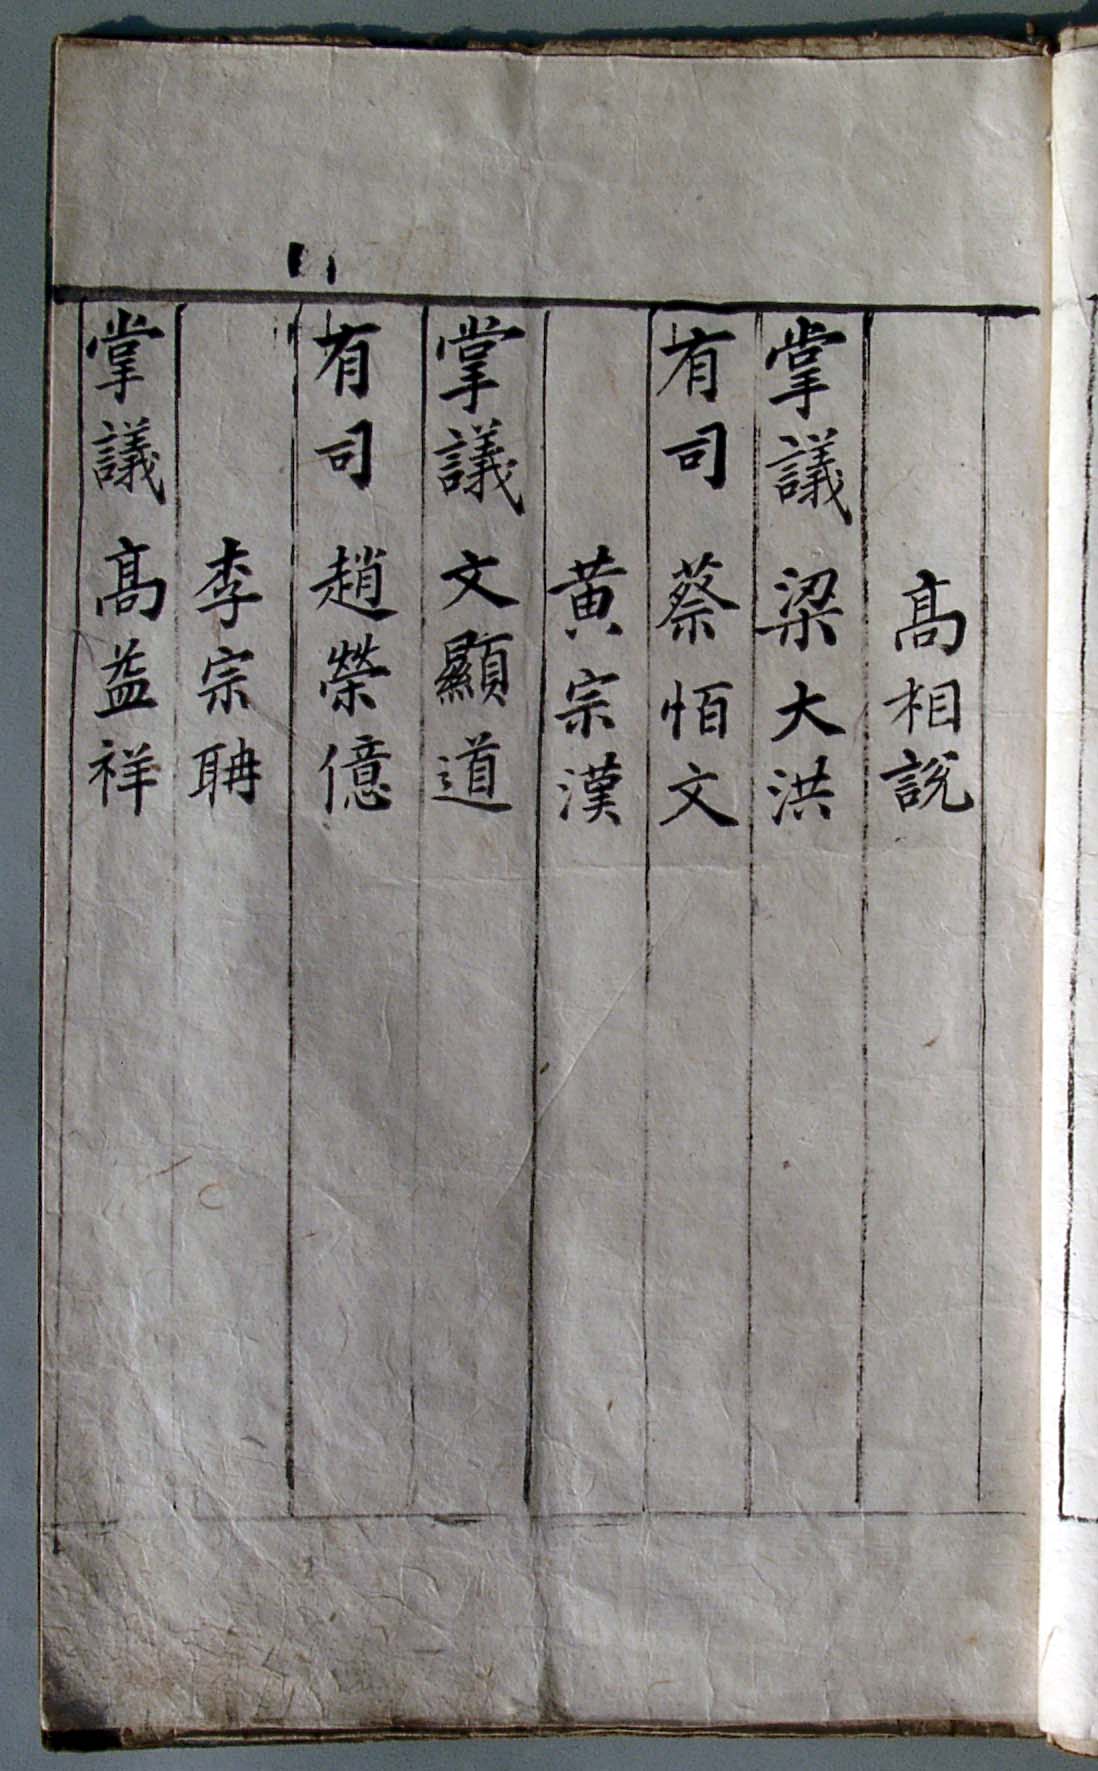 高相說
掌議 梁大洪
有司 蔡恒文
黃宗漢
掌議 文顯道
有司 趙榮億
李宗聃
掌議 高益祥